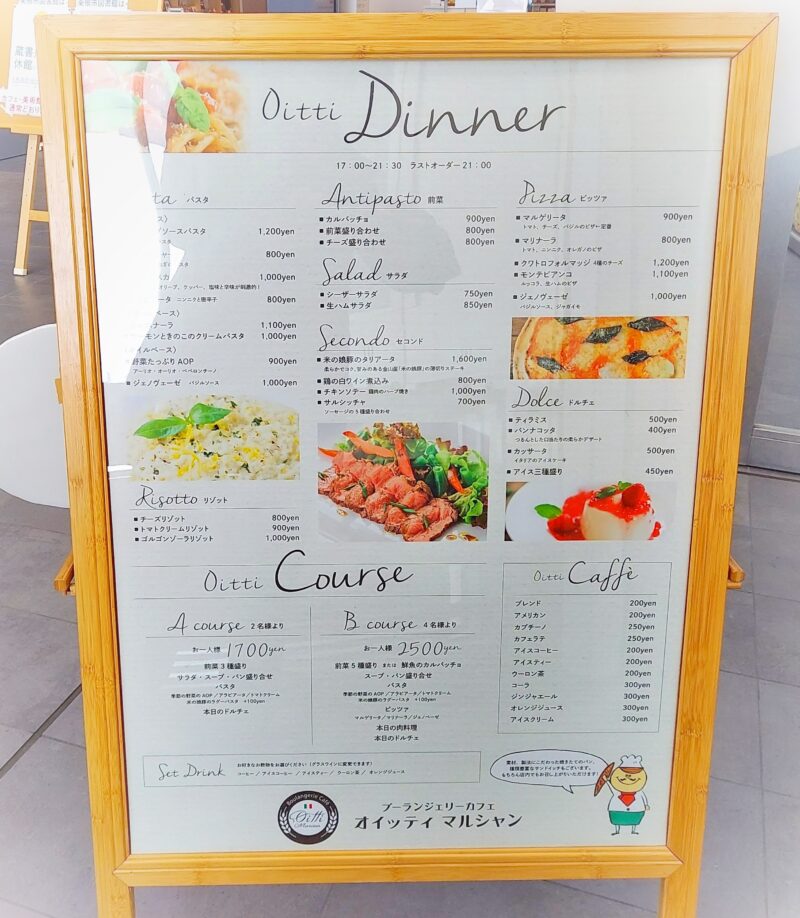 蔵書
休館
カフェ・美術館
通常どおり
Oitti Dinner
17：00〜21：30　ラストオーダー 21：00
パスタ
ソースパスタ 1,200yen
800yen
1,000yen
ニンニクと唐辛子 800yen
1,100yen
ときのこのクリームパスタ 1,000yen
イルベース〉
野菜たっぷり AOP 900yen
アーリオ・オーリオ・ペペロンチーノ
■ ジェノヴェーゼ バジルソース 1,000yen
Risotto リゾット
■ チーズリゾット 800yen
■ トマトクリームリゾット 900yen
■ ゴルゴンゾーラリゾット 1,000yen
Antipasto 前菜
■ カルパッチョ 900yen
■ 前菜盛り合わせ 800yen
■ チーズ盛り合わせ 800yen
Salad サラダ
■ シーザーサラダ 750yen
■ 生ハムサラダ 850yen
Secondo セコンド
■ 米の娘豚のタリアータ 1,600yen
柔らかでコク、甘みのある金山産「米の娘豚」の薄切りステーキ
■ 鶏の白ワイン煮込み 800yen
■ チキンソテー 鶏肉のハーブ焼き 1,000yen
■ サルシッチャ 700yen
ソーセージの5種盛り合わせ
Pizza ピッツァ
■ マルゲリータ 900yen
トマト、チーズ、バジルのピザ・定番
■ マリナーラ 800yen
トマト、ニンニク、オレガノのピザ
■ クワトロフォルマッジ 4種のチーズ 1,200yen
■ モンテビアンコ 1,100yen
ルッコラ、生ハムのピザ
■ ジェノヴェーゼ 1,000yen
バジルソース、ジャガイモ
Dolce ドルチェ
■ ティラミス 500yen
■ パンナコッタ 400yen
つるんとした口当たりの柔らかデザート
■ カッサータ 500yen
イタリアのアイスケーキ
■ アイス三種盛り 450yen
Oitti Course
A course 2名様より
お一人様 1700yen
前菜3種盛り
サラダ・スープ・パン盛り合せ
パスタ
季節の野菜の AOP ／アラビアータ／トマトクリーム
米の娘豚のラグーパスタ +100yen
本日のドルチェ
B course 4名様より
お一人様 2500yen
前菜5種盛り または 鮮魚のカルパッチョ
スープ・パン盛り合せ
パスタ
季節の野菜の AOP ／アラビアータ／トマトクリーム
米の娘豚のラグーパスタ +100yen
ピッツァ
マルゲリータ／マリナーラ／ジェノベーゼ
本日の肉料理
本日のドルチェ
Oitti Caffè
ブレンド 200yen
アメリカン 200yen
カプチーノ 250yen
カフェラテ 250yen
アイスコーヒー 200yen
アイスティー 200yen
ウーロン茶 200yen
コーラ 300yen
ジンジャエール 300yen
オレンジジュース 300yen
アイスクリーム 300yen
Set Drink お好きなお飲物をお選びください（グラスワインに変更できます）
コーヒー ／ アイスコーヒー ／ アイスティー ／ ウーロン茶 ／ オレンジジュース
素材、製法にこだわった焼きたてのパン、
種類豊富なサンドイッチもございます。
もちろん店内でもお召し上がりいただけます！
Boulangerie Cafe
Oitti
Marchan
ブーランジェリーカフェ
オイッティ マルシャン